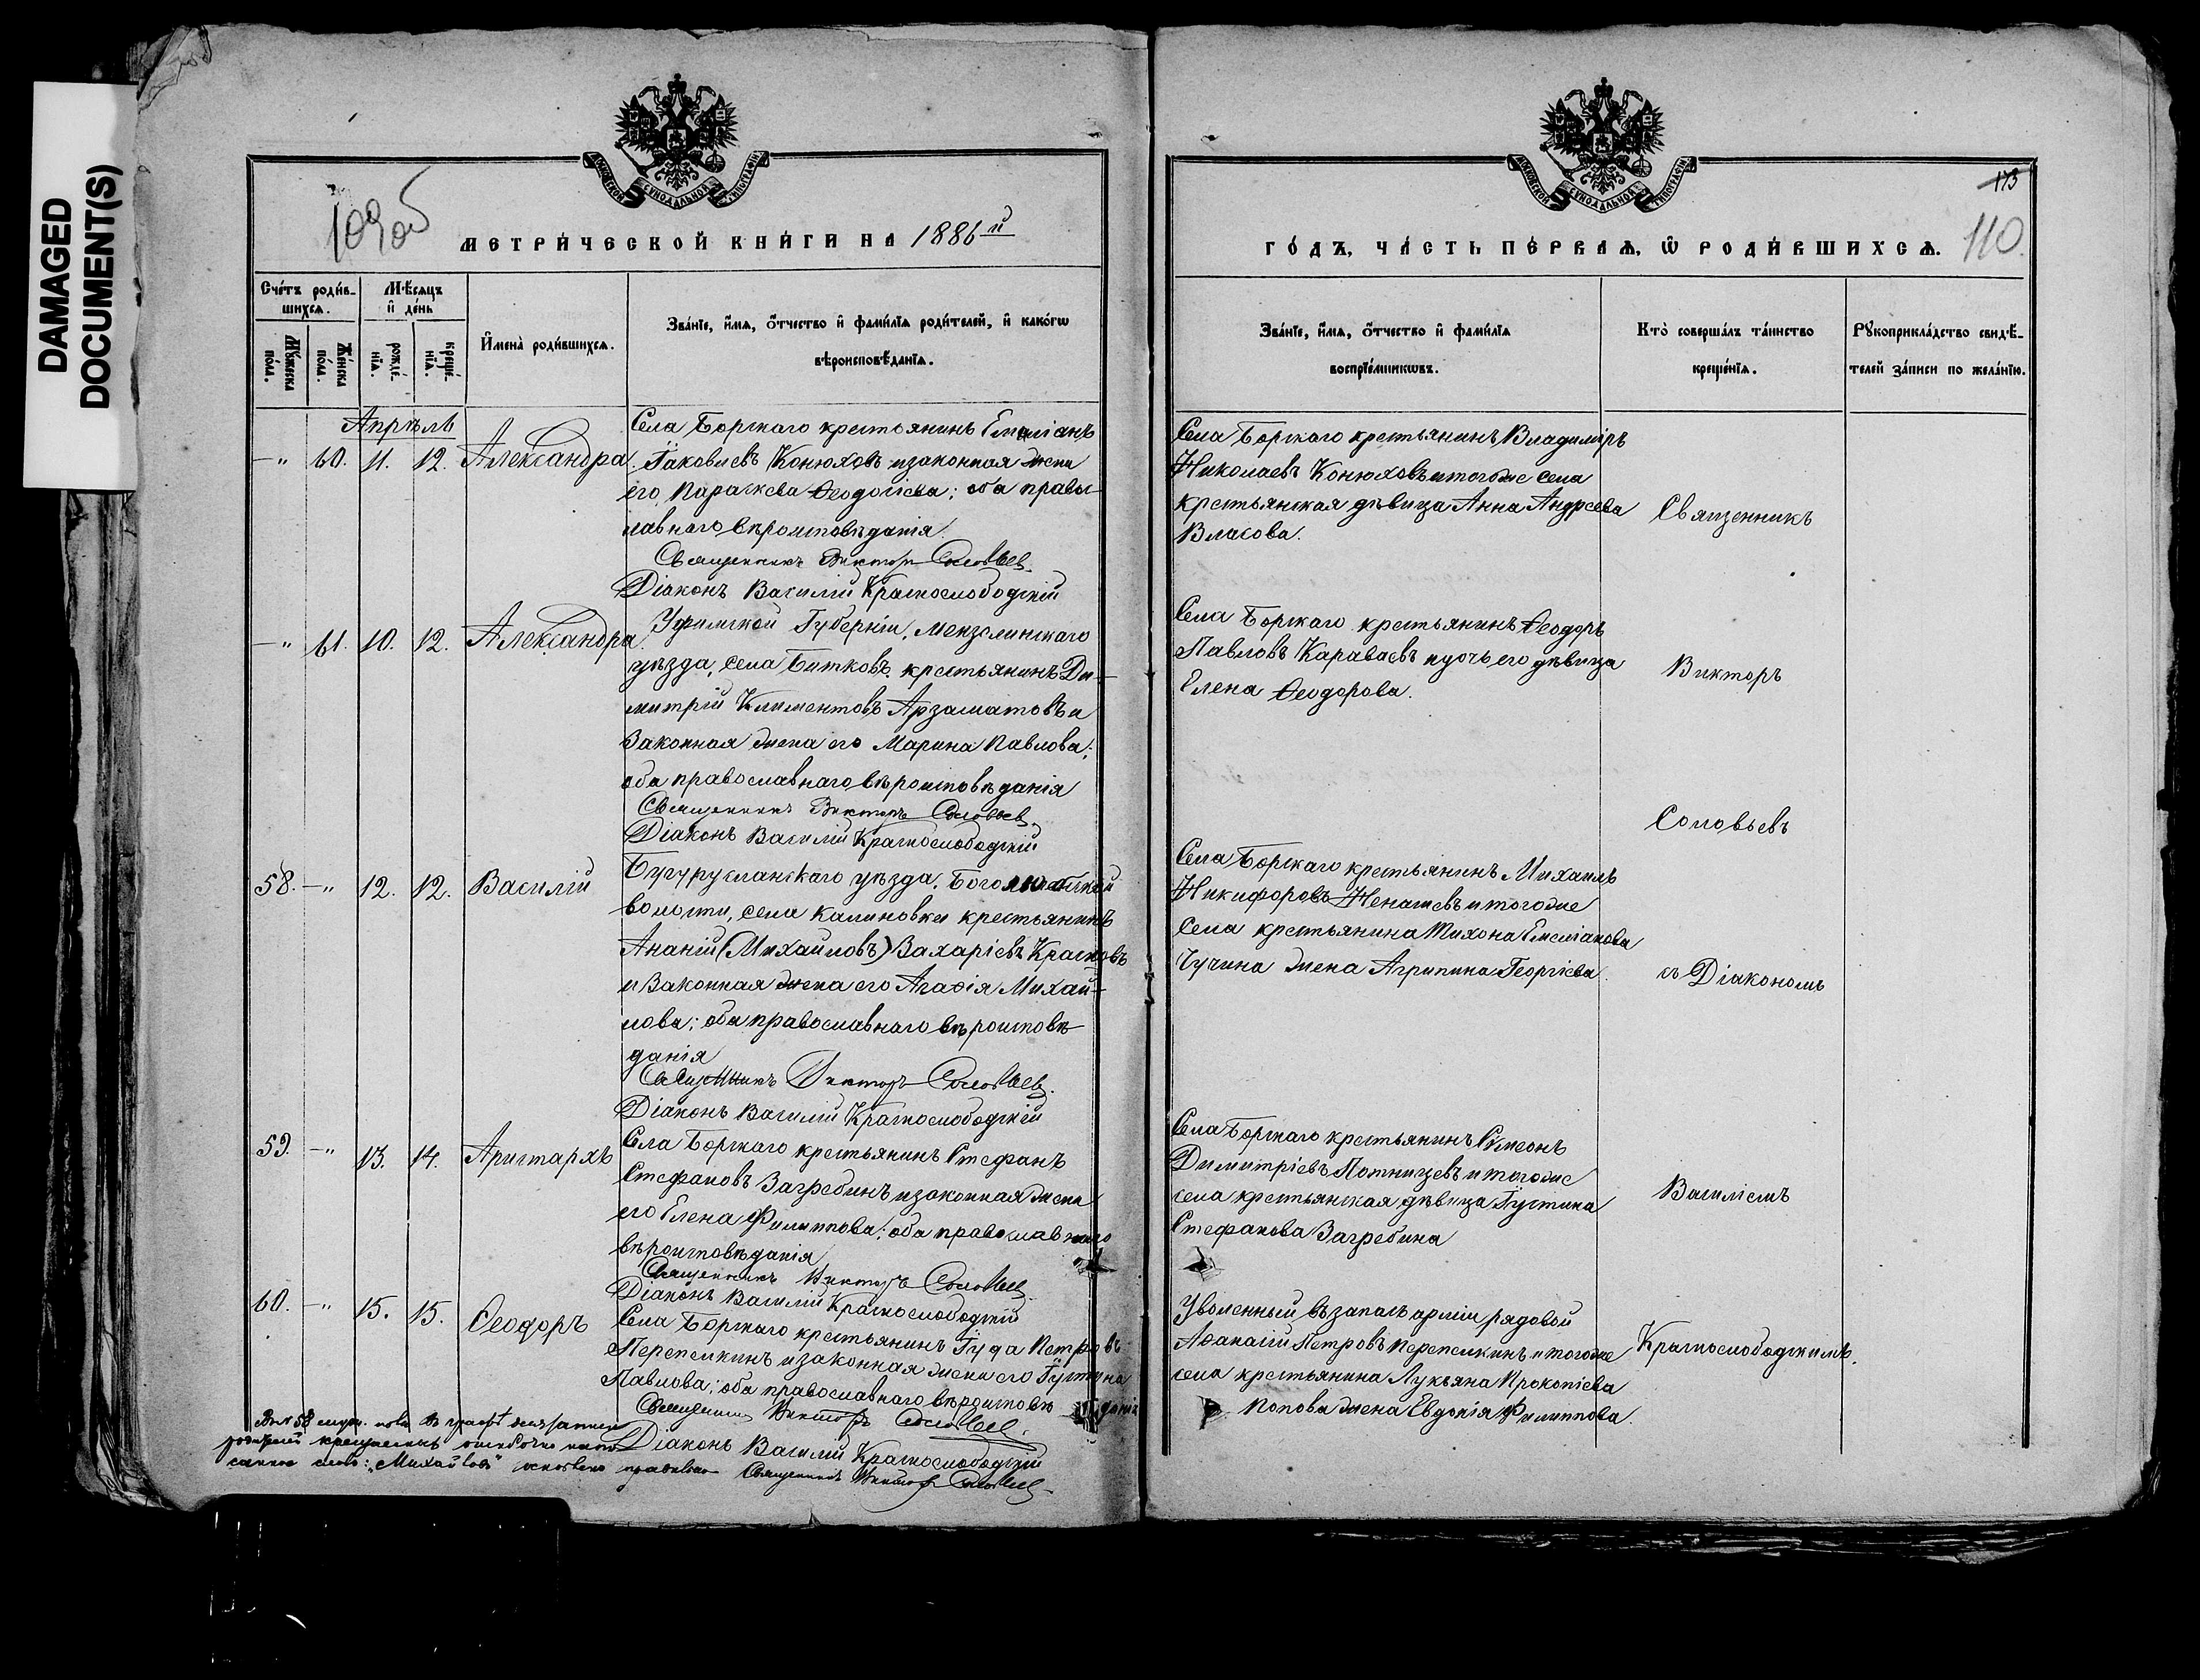 DAMAGED
DOCUMENT(S)
МОСКОВСКОЙ СѴНОДАЛЬНОЙ ТИПОГРАФІИ
109 об
МЕТРИ́ЧЕСКОЙ КНИ́ГИ НА 1886й
Сче́тъ роди́в-
шихсѧ.
Мѣ́сѧцъ
и҆ де́нь
Мꙋ́жеска
пола.
Же́нска
пола.
рожде́-
нїѧ.
креще́-
нїѧ.
И҆мена̀ роди́вшихсѧ.
Зва́нїе, и҆́мѧ, ѻ҆́тчество и҆ фами́лїѧ роди́телей, и҆ како́гѡ
вѣроисповѣ́данїѧ.
Апрѣль
—" 60. 11. 12. Александра.
Села Борскаго крестьянинъ Емиліанъ
Іаковлевъ Конюховъ и законная жена
его Параскева Ѳеодосіева; оба право-
славнаго вѣроисповѣданія.
Священникъ Викторъ Соловьев.
Діаконъ Василій Краснослободскій
—" 61. 10. 12. Александра.
Уфимской Губерніи, Мензелинскаго
уѣзда, села Битковъ, крестьянинъ Ди-
митрій Климентовъ Арзаматовъ и
законная жена его Марина Павлова;
оба православнаго вѣроисповѣданія
Священникъ Викторъ Соловьев.
Діаконъ Василій Краснослободскій
58. —" 12. 12. Василій
Бугурусланскаго уѣзда, Боголюбской
волости, села Калиновки крестьянинъ
Ананій (Михайловъ) Захаріевъ Красновъ
и законная жена его Агаѳія Михай-
лова; оба православнаго вѣроисповѣ-
данія
Священникъ Викторъ Соловьев.
Діаконъ Василій Краснослободскій
59. —" 13. 14. Аристархъ
Села Борскаго крестьянинъ Стефанъ
Стефановъ Загребинъ и законная жена
его Елена Филиппова; оба православнаго
вѣроисповѣданія
Священникъ Викторъ Соловьев.
Діаконъ Василій Краснослободскій
60. —" 15. 15. Ѳеодоръ
Села Борскаго крестьянинъ Іуда Петровъ
Перепелкинъ и законная жена его Іустина
Павлова; оба православнаго вѣроисповѣданія
Священникъ Викторъ Соловьев.
Діаконъ Василій Краснослободскій
въ № 58 муж. пола въ графѣ о записи
родителей крещаемыхъ ошибочно напи-
санное слово: „Михайловъ" Священникъ Викторъ Соловьев.
МОСКОВСКОЙ СѴНОДАЛЬНОЙ ТИПОГРАФІИ
113
110.
ГО́ДЪ, ЧА́СТЬ ПЕ́РВАѦ, Ѡ҆ РОДИ́ВШИХСѦ.
Зва́нїе, и҆́мѧ, ѻ҆́тчество и҆ фами́лїѧ
воспрїе́мникѡвъ.
Кто̀ соверша́лъ та́инство
креще́нїѧ.
Рꙋкоприкла́дство свидѣ́-
телей за́писи по жела́нїю.
Села Борскаго крестьянинъ Владиміръ
Николаевъ Конюховъ и тогоже села
крестьянская дѣвица Анна Андреева
Власова.
Села Борскаго крестьянинъ Ѳеодоръ
Павловъ Караваевъ и дочь его дѣвица
Елена Ѳеодорова.
Села Борскаго крестьянинъ Михаилъ
Никифоровъ Ненашевъ и тогоже
села крестьянина Тихона Емеліанова
Чучина жена Агрипина Георгіева.
Села Борскаго крестьянинъ Сѵмеонъ
Димитріевъ Потницевъ и тогоже
села крестьянская дѣвица Іустина
Стефанова Загребина
Уволенный въ запасъ арміи рядовой
Аѳанасій Петровъ Перепелкинъ и тогоже
села крестьянина Лукьяна Прокопіева
Попова жена Евдокія Филиппова.
Священникъ
Викторъ
Соловьевъ
съ Діакономъ
Василіемъ
Краснослободскимъ.